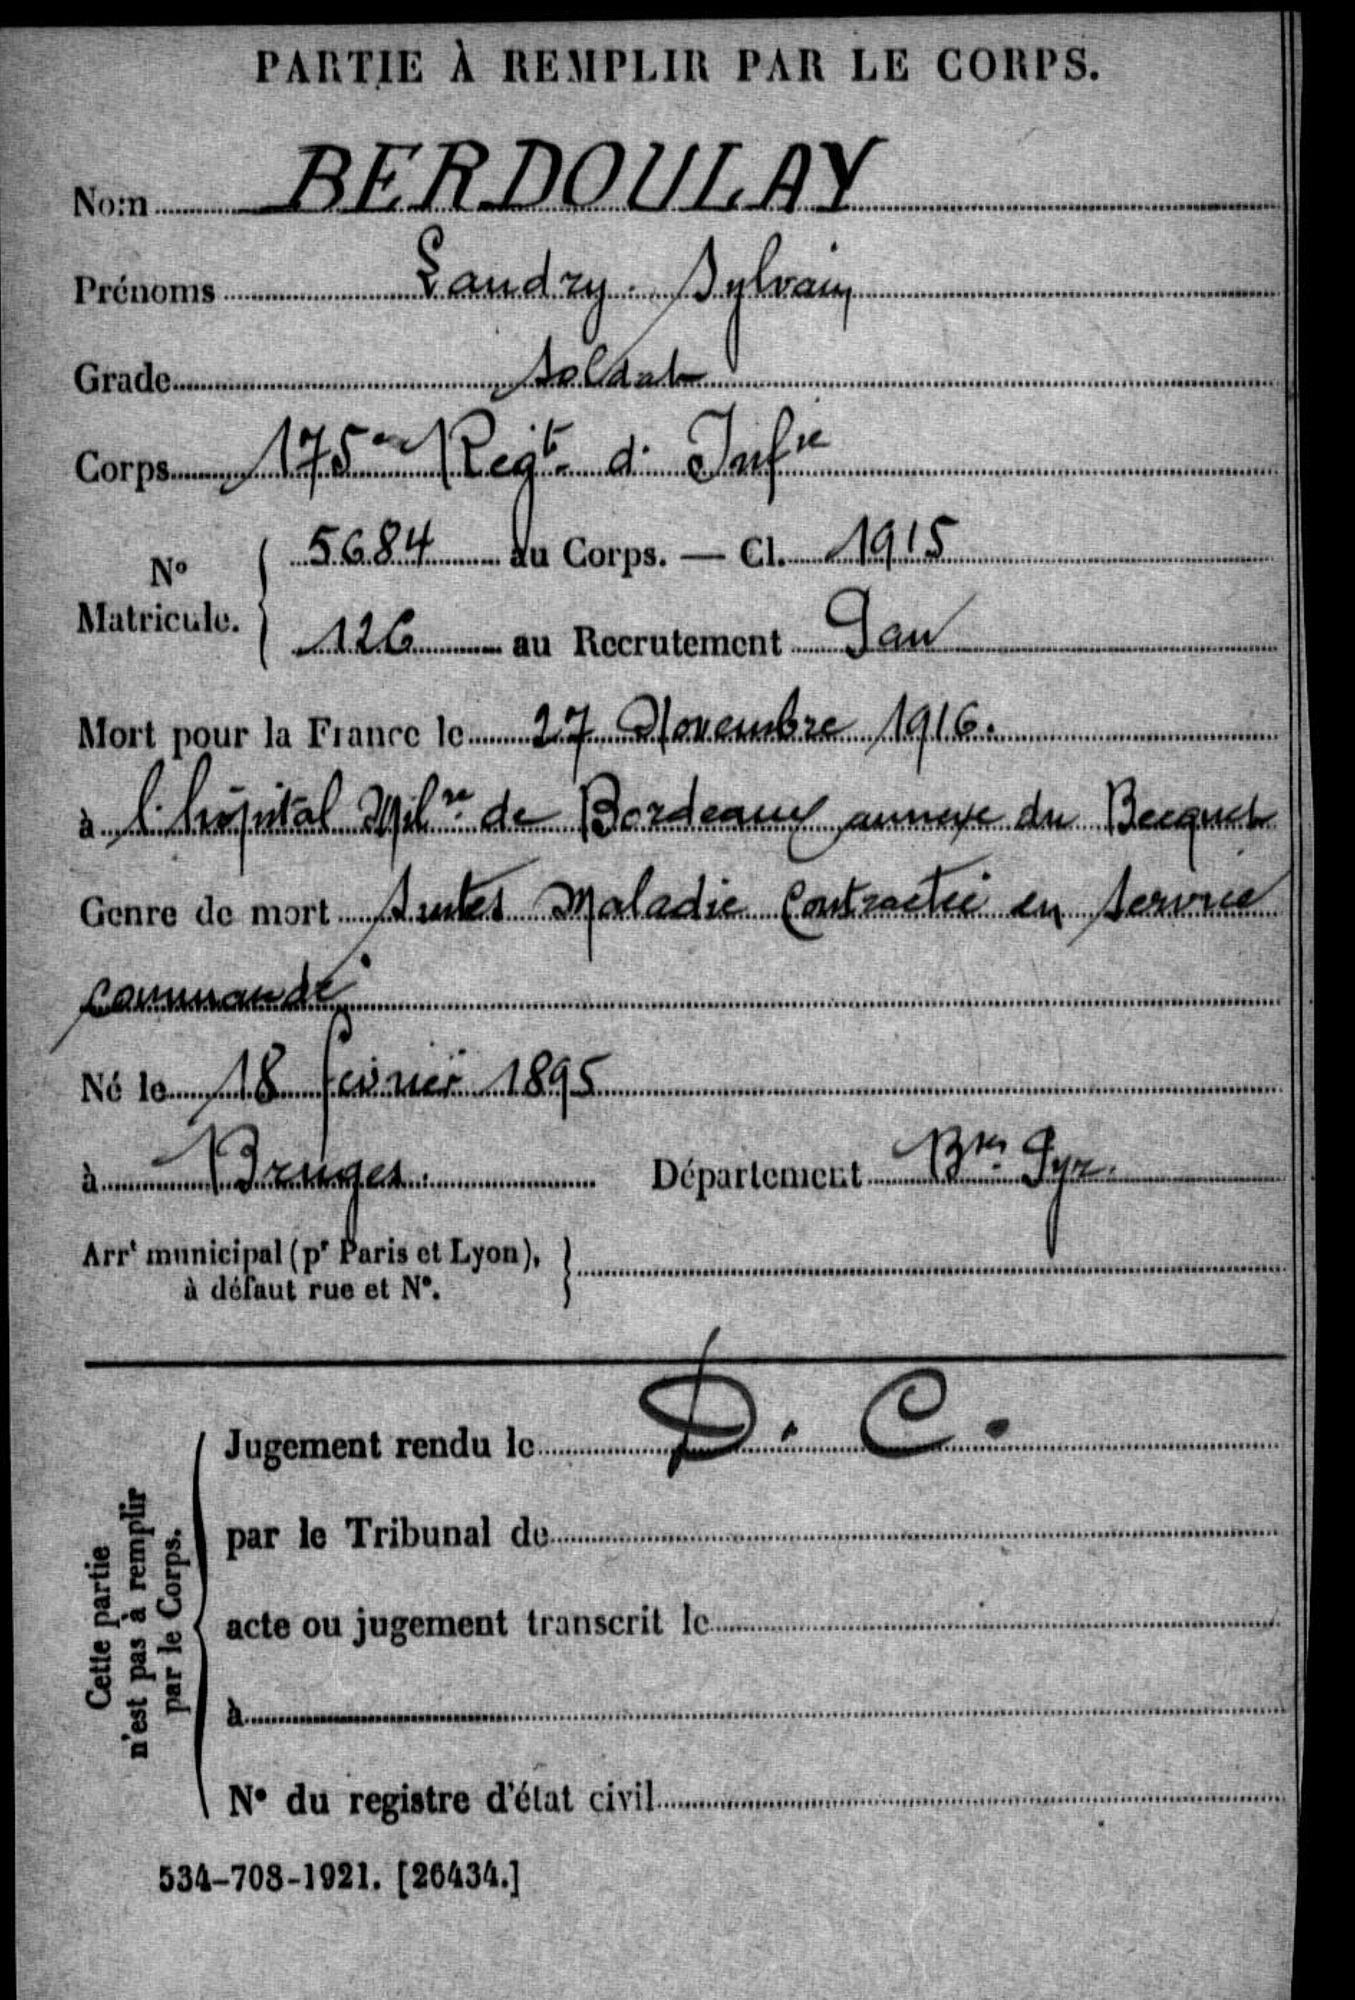 PARTIE À REMPLIR PAR LE CORPS.
Nom BERDOULAY
Prénoms Landry Sylvain
Grade Soldat
Corps 175e Regt d'Infie
N° Matricule. 5684 au Corps. — Cl. 1915
126 au Recrutement Pau
Mort pour la France le 27 Novembre 1916.
à l'hôpital Milre de Bordeaux annexe du Becquet
Genre de mort Suites Maladie Contractée en Service
commandé
Né le 18 février 1895
à Bruges. Département Bses Pyr.
Arrt municipal (pr Paris et Lyon),
à défaut rue et N°.
D. C.
Jugement rendu le
par le Tribunal de
acte ou jugement transcrit le
à
N° du registre d'état civil
Cette partie
n'est pas à remplir
par le Corps.
534-708-1921. [26434.]